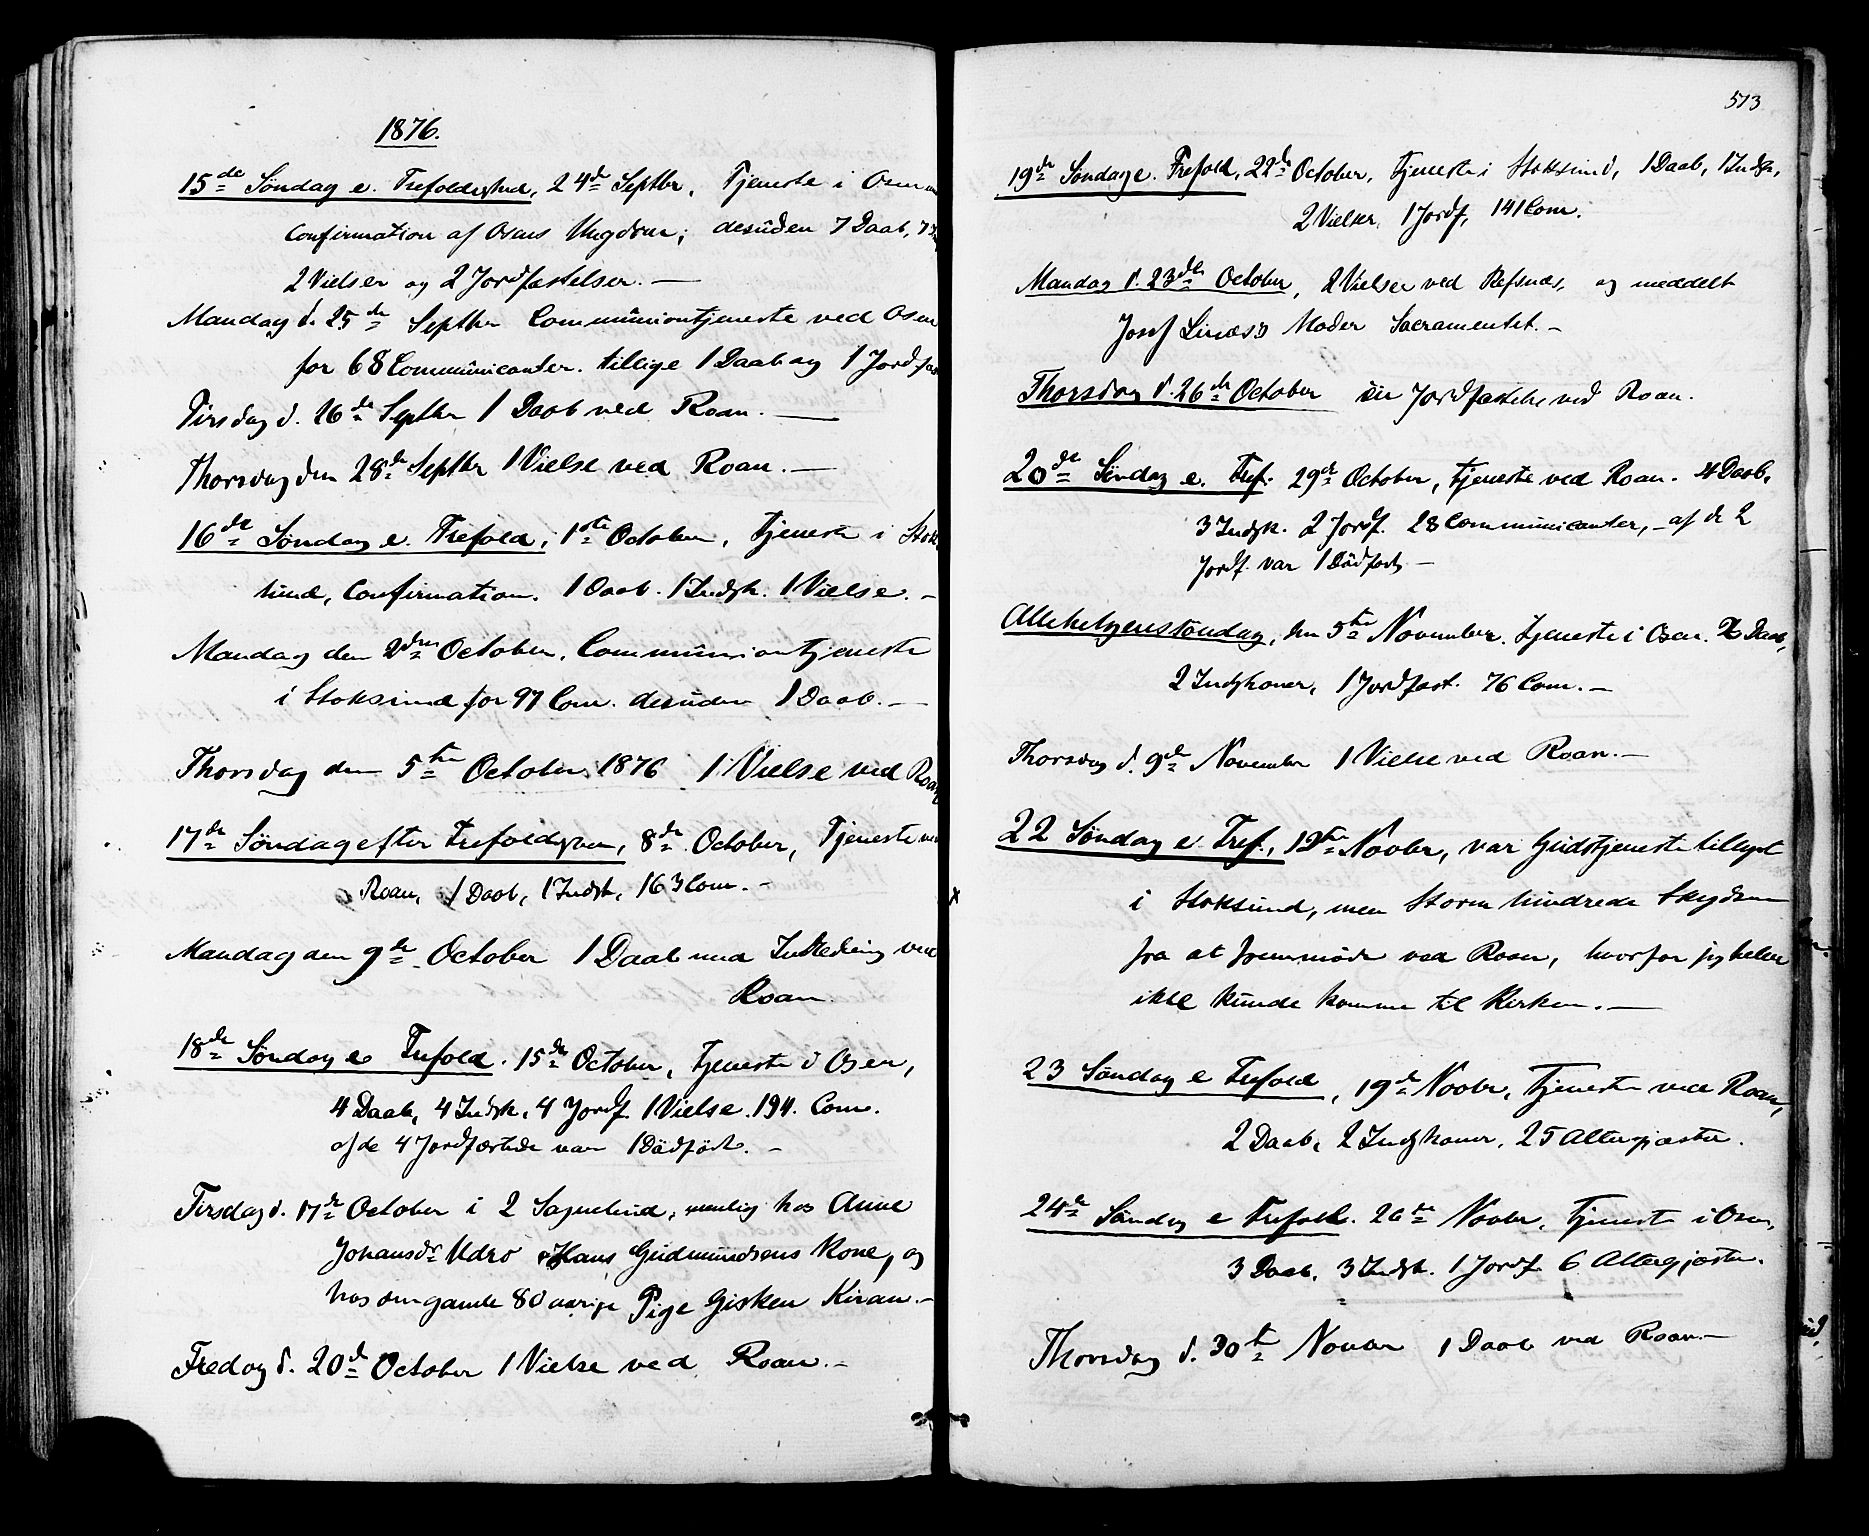 1876.
15de Søndag e. Trefoldighed, 24de Septbr. Tjeneste i Osen
Confirmation af Osens Ungdom; desuden 7 Daab, 7
2 Vielser og 2 Jordfæstelser. —
Mandag d. 25de Septbr Communiontjeneste ved Osen
for 68 Communicanter. tillige 1 Daab og 1 Jordfæst
Tirsdag d. 26de Septbr 1 Daab ved Roan. —
Thorsdag den 28de Septbr 1 Vielse ved Roan. —
16de Søndag e. Trefold, 1ste October, Tjeneste i Stok
sund, Confirmation. 1 Daab. 1 Indgk. 1 Vielse. —
Mandag den 2den October. Communiontjeneste
i Stoksund for 97 Com. desuden 1 Daab. —
Thorsdag den 5te October 1876 1 Vielse ved Roan
17de Søndag efter Trefoldighen, 8de October, Tjeneste ved
Roan, 1 Daab, 1 Indgk, 163 Com. —
Mandag den 9de October 1 Daab med Indledning ved
Roan.
18de Søndag e. Trefold. 15de October, Tjeneste i Osen,
4 Daab, 4 Indgk, 4 Jordf. 1 Vielse. 194. Com.
af de 4 Jordfæstede var 1 Dödfödt. —
Tirsdag d. 17de October i 2 Sognebud, nemlig hos Anne
Johansdr Udro Hans Gudmundsens Kone, og
hos den gamle 80 aarige Pige Gisken Kiran. —
Fredag d. 20de October 1 Vielse ved Roan. —
513
19de Søndag e. Trefold, 22de October, Tjeneste i Stoksund, 1 Daab, 1 Indgk,
2 Vielser, 1 Jordf, 141 Com.
Mandag d. 23de October, 2 Vielser ved Refsnæs, og meddelt
Josef Moder Sacramentet. —
Thorsdag d. 26de October en Jordfæstelse ved Roan.
20de Søndag e. Tref. 29de October, Tjeneste ved Roan. 4 Daab,
3 Indgk. 2 Jordf. 28 Communicanter, — af de 2
Jordf. var 1 Dödfødt —
Allehelgenssøndag, den 5te November. Tjeneste i Osen. 2 Daab,
2 Indgkoner, 1 Jordfæst. 76 Com. —
Thorsdag d. 9de November 1 Vielse ved Roan. —
22 Søndag e. Tref., 12te Novbr, var Gudstjeneste tillyst
i Stoksund, men Storm hindrede Skydsen
fra at fremmöde ved Roan, hvorfor jeg heller
ikke kunde komme til Kirken. —
23 Søndag e Trefold, 19de Novbr, Tjeneste ved Roan,
2 Daab, 2 Indgkoner, 25 Altergjæster.
24de Søndag e Trefold. 26de Novbr, Tjeneste i Osen,
3 Daab, 3 Indgk. 1 Jordf. 6 Altergjæster.
Thorsdag d. 30te Novbr 1 Daab ved Roan. —